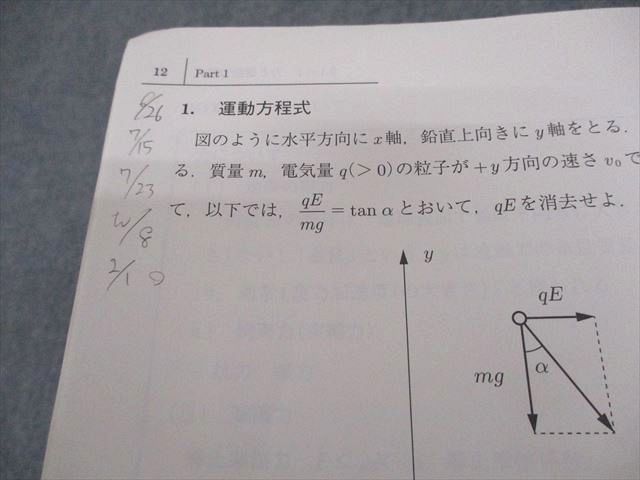 12 Part 1
1. 運動方程式
図のように水平方向に x 軸，鉛直上向きに y 軸をとる．
る．質量 m，電気量 q(>0)の粒子が +y 方向の速さ v₀ で
て，以下では，qE/mg = tan α とおいて，qE を消去せよ．
6/26
7/15
7/23
y
qE
mg
α